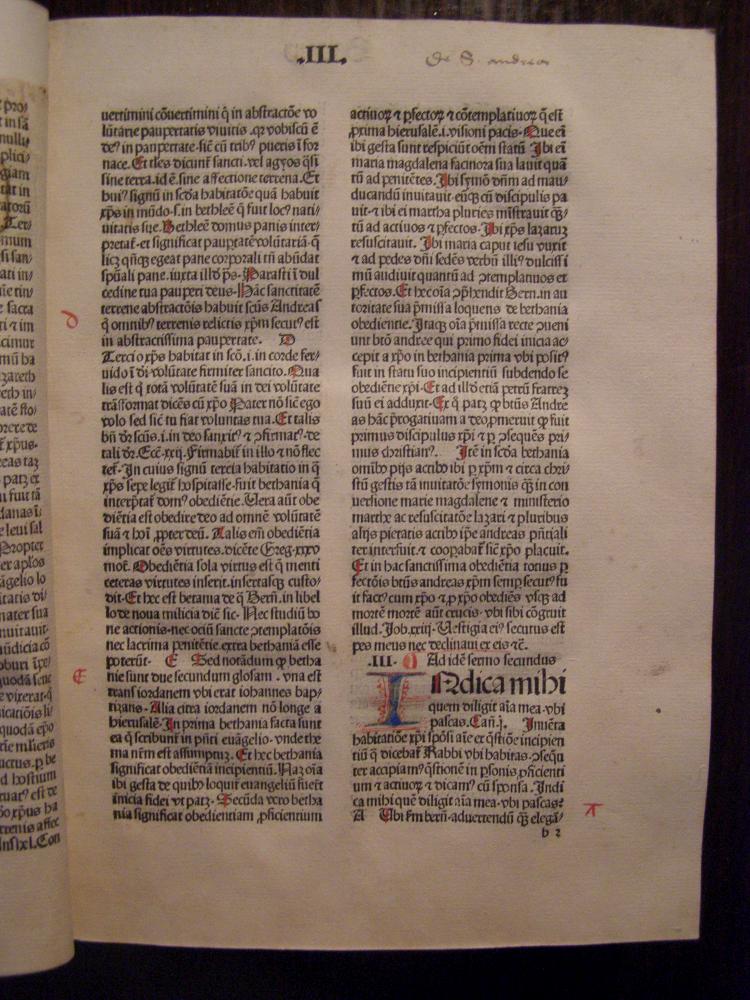 .III.
de S. andrea
uertimini cõuertimini q̃ in abstractiõe vo
lũtarie paupertatis viuitis .qr vobiscũ ẽ
de⁹ in paupertate. sic̃ cũ trib⁹ pueris ĩ for
nace. Et tles dicunt̃ sancti. vel agyos q̃si
sine terra. id ẽ. sine affectione terrena. Et
hui⁹ signũ in sc̃da habitatõe quã habuit
xp̃s in mũdo .s. in bethleẽ q̃ fuit loc⁹ nati/
uitatis sue. Bethleẽ domus panis inter/
pretat̃. et significat paup̃tatẽ volũtariã. q̃
licꝫ qñqꝫ egeat pane corporali tñ abũdat
sp̃uali pane. iuxta illđ p̃s. Parasti ĩ dul
cedine tua pauperi deus. Hãc sanctitatẽ
terrene abstractiõis habuit sc̃us Andreas
q̃ omnib⁹ terrenis relictis xp̃m secut⁹ est
in abstractissima paupertate. D
Tercio xp̃s habitat in sc̃õ .i. in corde fer/
uido ĩ di volũtate firmiter sancito. Qua
lis est q̃ totã volũtatẽ suã in dei volũtate
trãsformat dicẽs cũ xp̃o Pater nõ sic̃ ego
volo sed sic̃ tu fiat voluntas tua. Et talis
bñ dr̃ sc̃us .i. in deo sanxit⁹ ⁊ ꝯfirmat⁹. de
tali dr̃. Ecc̃. xxij. Firmabit̃ in illo ⁊ nõ flec
tet̃. In cuius signũ tercia habitatio in q̃
xp̃s sepe legit̃ hospitasse. fuit bethania q̃
interp̃tat̃ dom⁹ obediẽtie. Uera aũt obe
diẽtia est obedire deo ad omnẽ volũtatẽ
suã ⁊ hoĩ ꝓpter deũ. Talis em̃ obediẽtia
implicat oẽs virtutes. dicẽte Greg. xxxv
moꝝ. Obediẽtia sola virtus est q̃ menti
ceteras virtutes inserit. insertasqꝫ custo/
dit. Et hec est betania de q̃ Berñ. in libel
lo de noua milicia dic̃ sic. Nec studiũ bo
ne actionis. nec ociũ sancte ꝯtemplatõis
nec lacrima penitẽtie. extra bethaniã esse
poterũt. E Sed notãdum ꝙ betha
nie sunt due secundum glosam . vna est
trans iordanem vbi erat iohannes bap/
tizans. Alia citra iordanem nõ longe a
hierusalẽ. In prima bethania facta sunt
ea q̃ scribunt̃ in p̃ñti euãgelio. vnde the
ma ñrm est assumptuꝫ. Et hec bethania
significat obediẽtiã incipientiũ. Naꝫ oĩa
ibi gesta de quib⁹ loquit̃ euangeliũ fuer̃t
inicia fidei vt patꝫ. Secũda vero betha
nia significat obedientiam ꝓficientium
actiuoꝝ ⁊ ꝑfectoꝝ ⁊ cõtemplatiuoꝝ q̃ est
ꝓxima hierusalẽ .i. visioni pacis. Que eñ
ibi gesta sunt respiciũt oẽm statũ Ibi eñ
maria magdalena facinora sua lauit quã
tũ ad penitẽtes. Ibi symõ dñm ad man/
ducandũ inuitauit. eũqꝫ cũ discipulis pa
uit. ⁊ ibi ei martha pluries mĩstrauit q̃
tũ ad actiuos ⁊ ꝑfectos. Ibi xp̃s lazaruꝫ
resuscitauit. Ibi maria caput iesu vnxit
⁊ ad pedes dñi sedẽs verbũ illi⁹ dulcissi
mũ audiuit quantũ ad ꝯtemplatiuos et
ꝑfectos. Et hec oĩa ꝯp̃hendit Bern. in au
toritate sua p̃missa loquens de bethania
obedientie. Itaqꝫ oĩa p̃missa recte ꝯueni
unt btõ andree qui primo fidei inicia ac/
cepit a xp̃o in bethania prima vbi posit⁹
fuit in statu suo incipientiũ subdendo se
obediẽtie xp̃i. Et ad illđ etiã petrũ fratreꝫ
suũ ei adduxit. Ex q̃ patꝫ ꝙ bt̃us Andre
as hãc p̃rogatiuam a deo ꝓmeruit ꝙ fuit
primus discipulus xp̃i ⁊ ꝑ ꝯseq̃ñs pri/
mus christian⁹. Itẽ in sc̃da bethania
omĩb⁹ pijs actib⁹ ibi ꝑ xp̃m ⁊ circa chri/
stũ gestis tã inuitatõe symonis q̃ꝫ in con
uersione marie magdalene ⁊ ministerio
marthe ac resuscitatõe lazari ⁊ pluribus
alijs pietatis actib⁹ ip̃e andreas p̃ñtiali
ter interfuit. ⁊ coopabat̃ sic̃ xp̃o placuit.
Et in hac sanctissima obediẽtia totius ꝑ
fectõis bt̃us andreas xp̃m semꝑ secut⁹ fu
it fact⁹ cum xp̃o ⁊ ꝓ xp̃o obediẽs vsqꝫ ad
mortẽ mortẽ aũt crucis. vbi sibi cõgruit
illud. Job. xxiij. Uestigia ei⁹ secutus est
pes meus nec declinaui ex eis ⁊c̃.
.III. Ad idẽ sermo secundus
INdica mihi
quem diligit aĩa mea. vbi
pascas. Cañ. j. Inuẽta
habitatiõe xp̃i sp̃õsi aĩe ex q̃stiõe incipien
tiũ q̃ dicebãt Rabbi vbi habitas. ꝯsequ
ter accipiam⁹ q̃stionẽ in ꝑsonis ꝓficienti
um ⁊ actiuoꝝ ⁊ dicam⁹ cũ sponsa. Indi
ca mihi quẽ diligit aĩa mea. vbi pascas?
A Ubi s̃m berñ. aduertendũ qꝫ elegã/
b 2